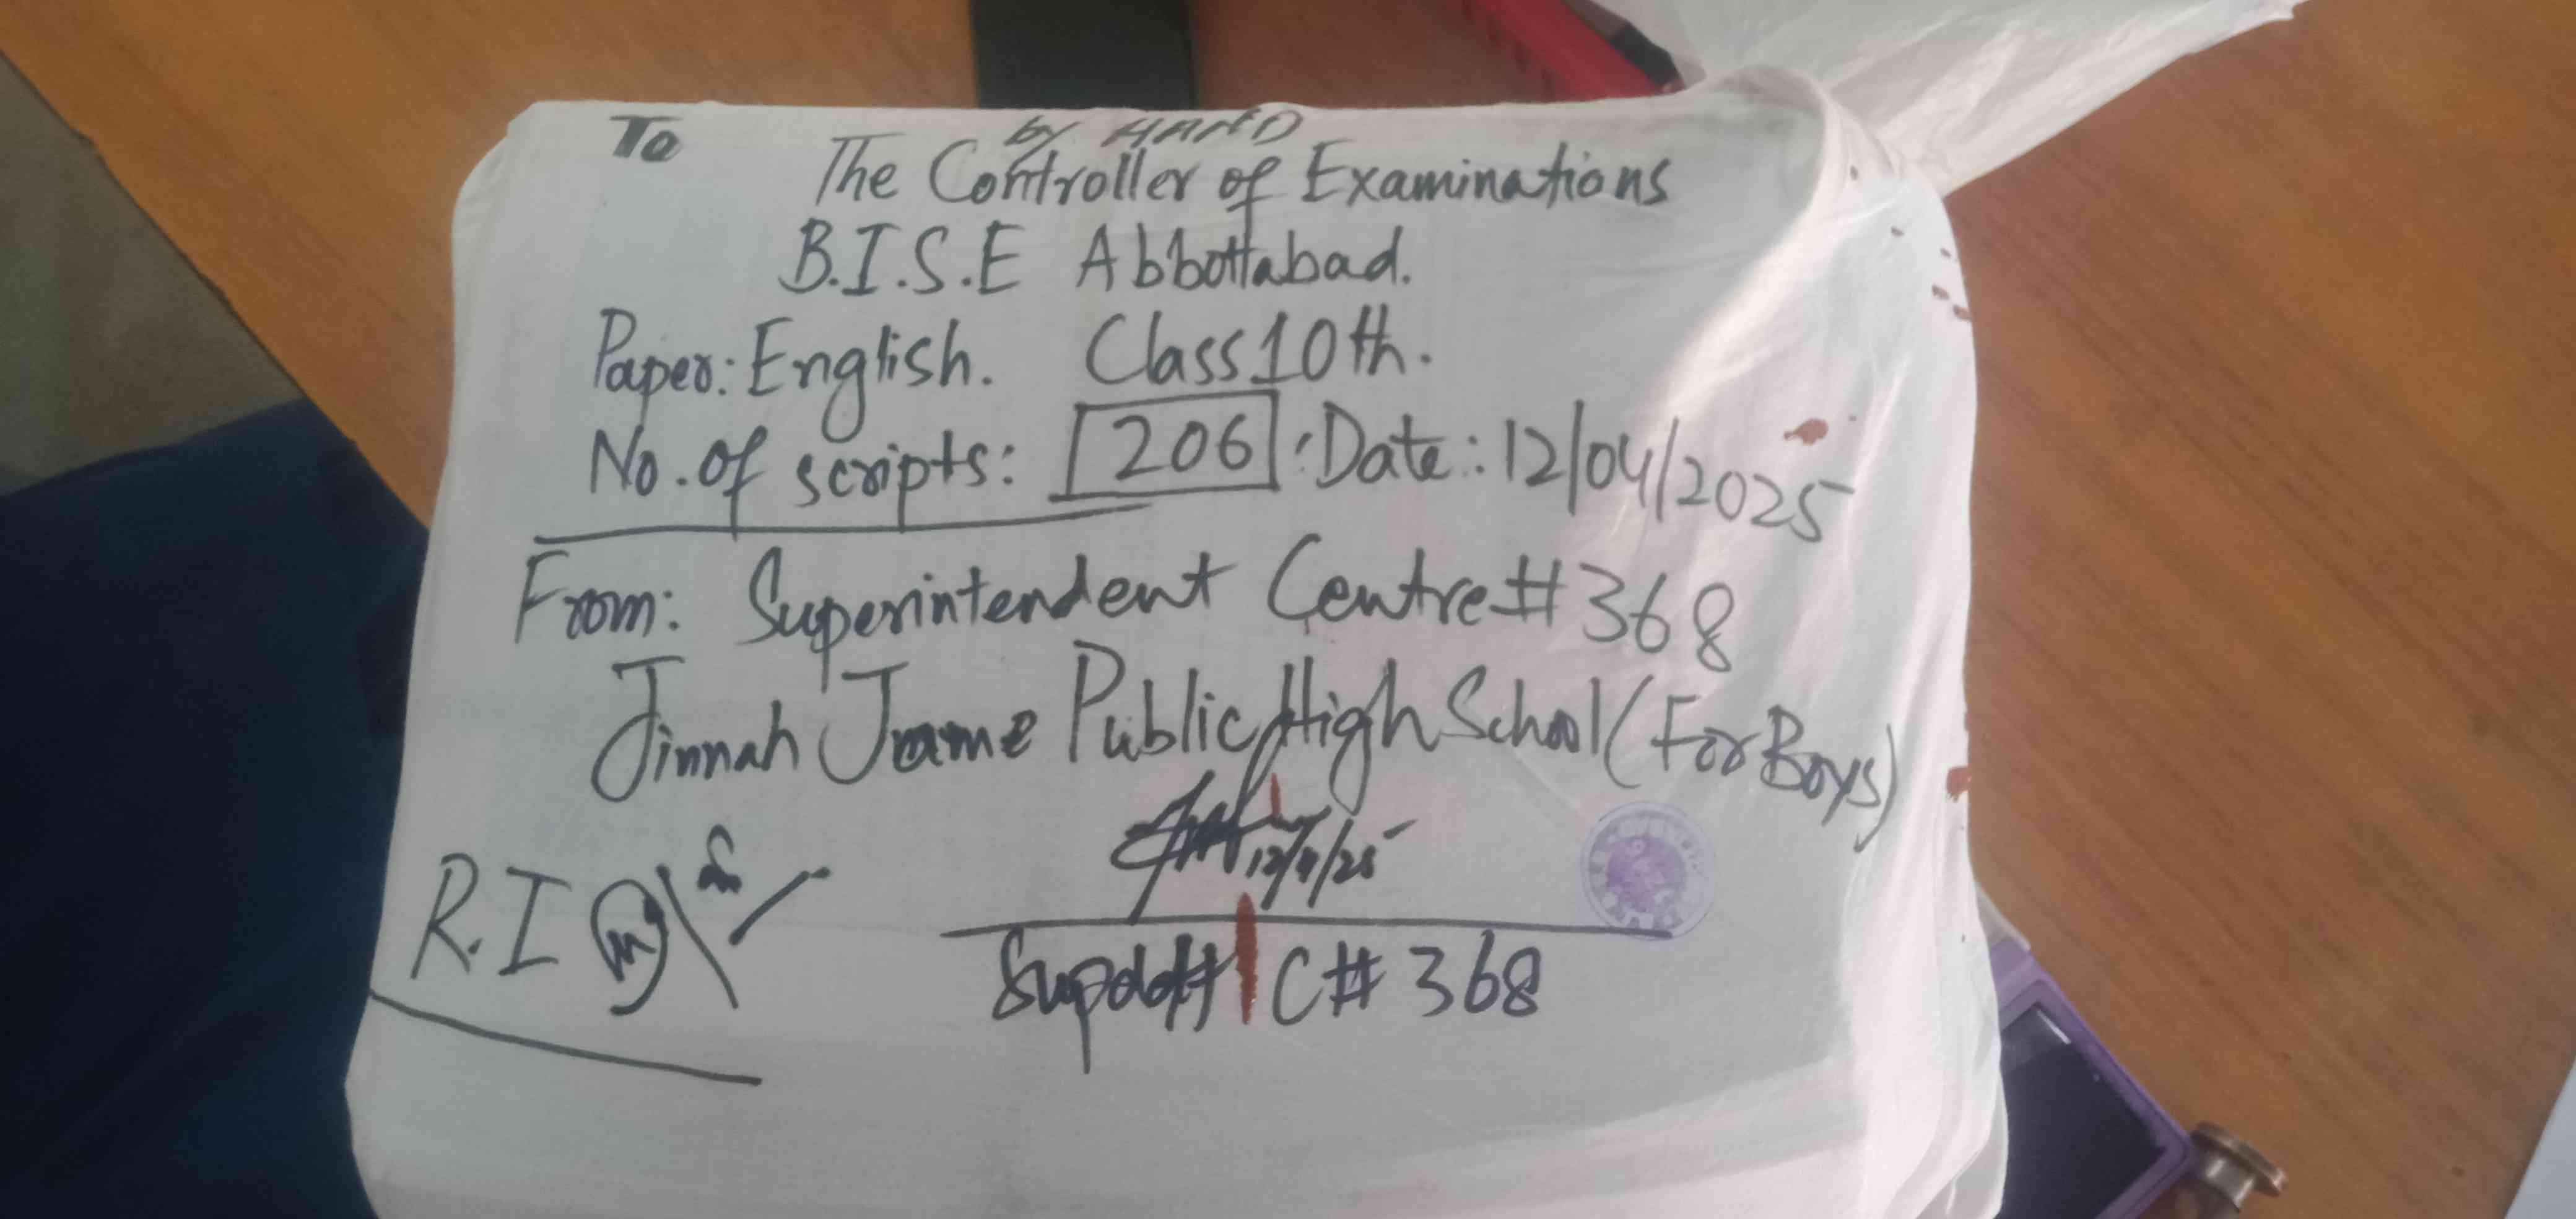 To
by HAND
The Controller of Examinations
B.I.S.E Abbottabad.
Paper: English. Class 10th.
No. of scripts: 206 Date: 12/04/2025
From: Superintendent Centre # 368
Jinnah Jame Public High School (For Boys)
12/4/25
R.I
Supdt C# 368